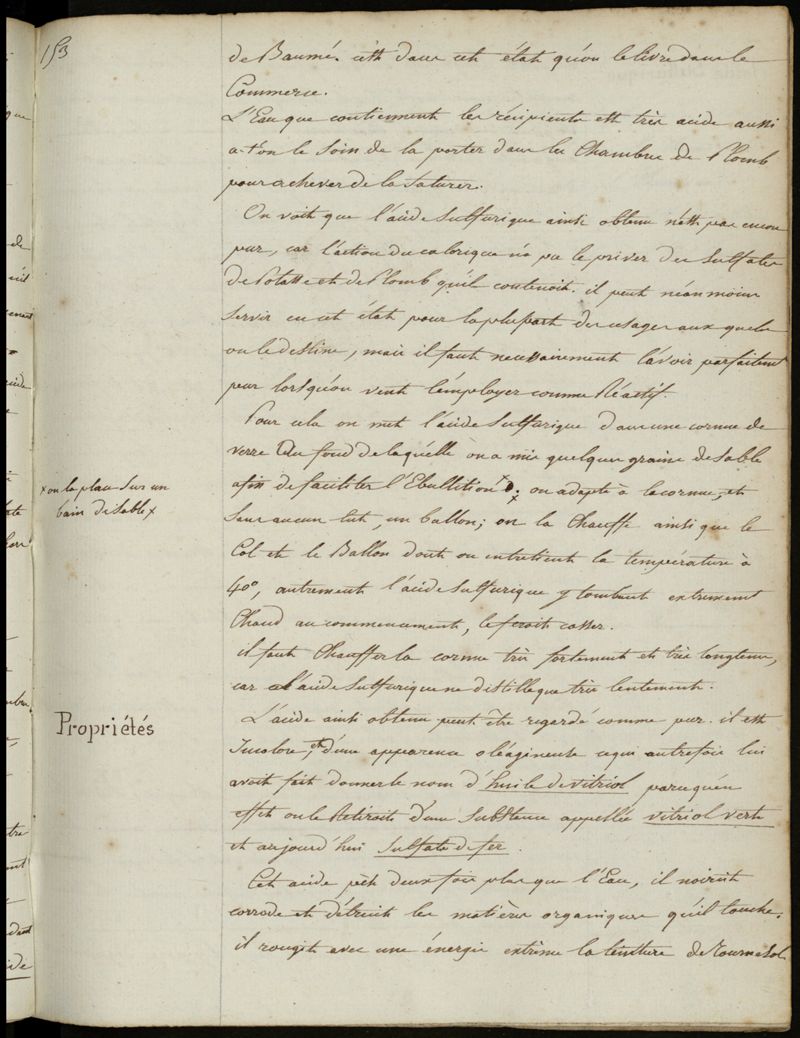 153
de Baumé. c'est dans cet état qu'on le livre dans le
Commerce.
L'Eau que contiennent les récipients est très acide aussi
a-t'on le soin de la porter dans les Chambres de Plomb
pour achever de la Saturer.
On voit que l'acide Sulfurique ainsi obtenu n'est pas encore
pur, car l'action du calorique n'a pu le priver des Sulfates
de Potasse et de Plomb qu'il contenoit. il peut néanmoins
Servir en cet état pour la plupart des usages aux quels
on le destine, mais il faut necessairement l'avoir parfaitemt
pur lorsqu'on veut l'employer comme Réactif.
Pour cela on met l'acide Sulfurique dans une cornue de
verre au fond de laquelle on a mis quelques grains de Sable
afin de faciliter l'Ebullition x; on adapte à la cornue, et
x on la place Sur un
bain de Sable x
Sans aucun lut, un ballon; on la Chauffe ainsi que le
Col et le Ballon dont on entretient la température à
40°, autrement l'acide Sulfurique y tombant extremement
Chaud au commencement, le feroit casser.
il faut Chauffer la cornue très fortement et très longtems,
car l'acide Sulfurique ne distille que très lentement.
Propriétés
L'acide ainsi obtenu peut être regardé comme pur. il est
Incolore, et d'une apparence oléagineuse ce qui autrefois lui
avoit fait donner le nom d'huile de vitriol parcequ'en
effet on le Retiroit d'une Substance appellée vitriol verte
et aujourd'hui Sulfate de fer.
Cet acide pèse deux fois plus que l'Eau, il noircit
corrode et détruit les matières organiques qu'il touche.
il rougit avec une énergie extrême la teinture de Tournesol